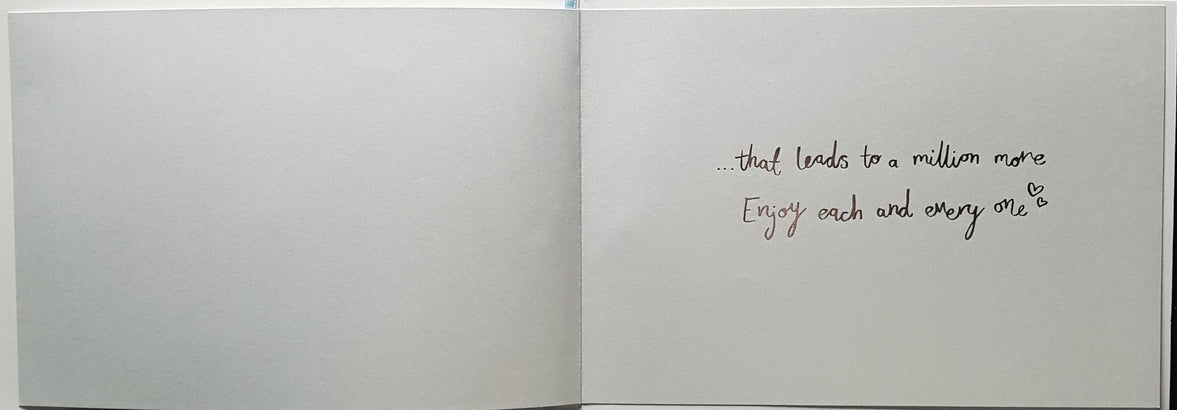 ...that leads to a million more
Enjoy each and every one